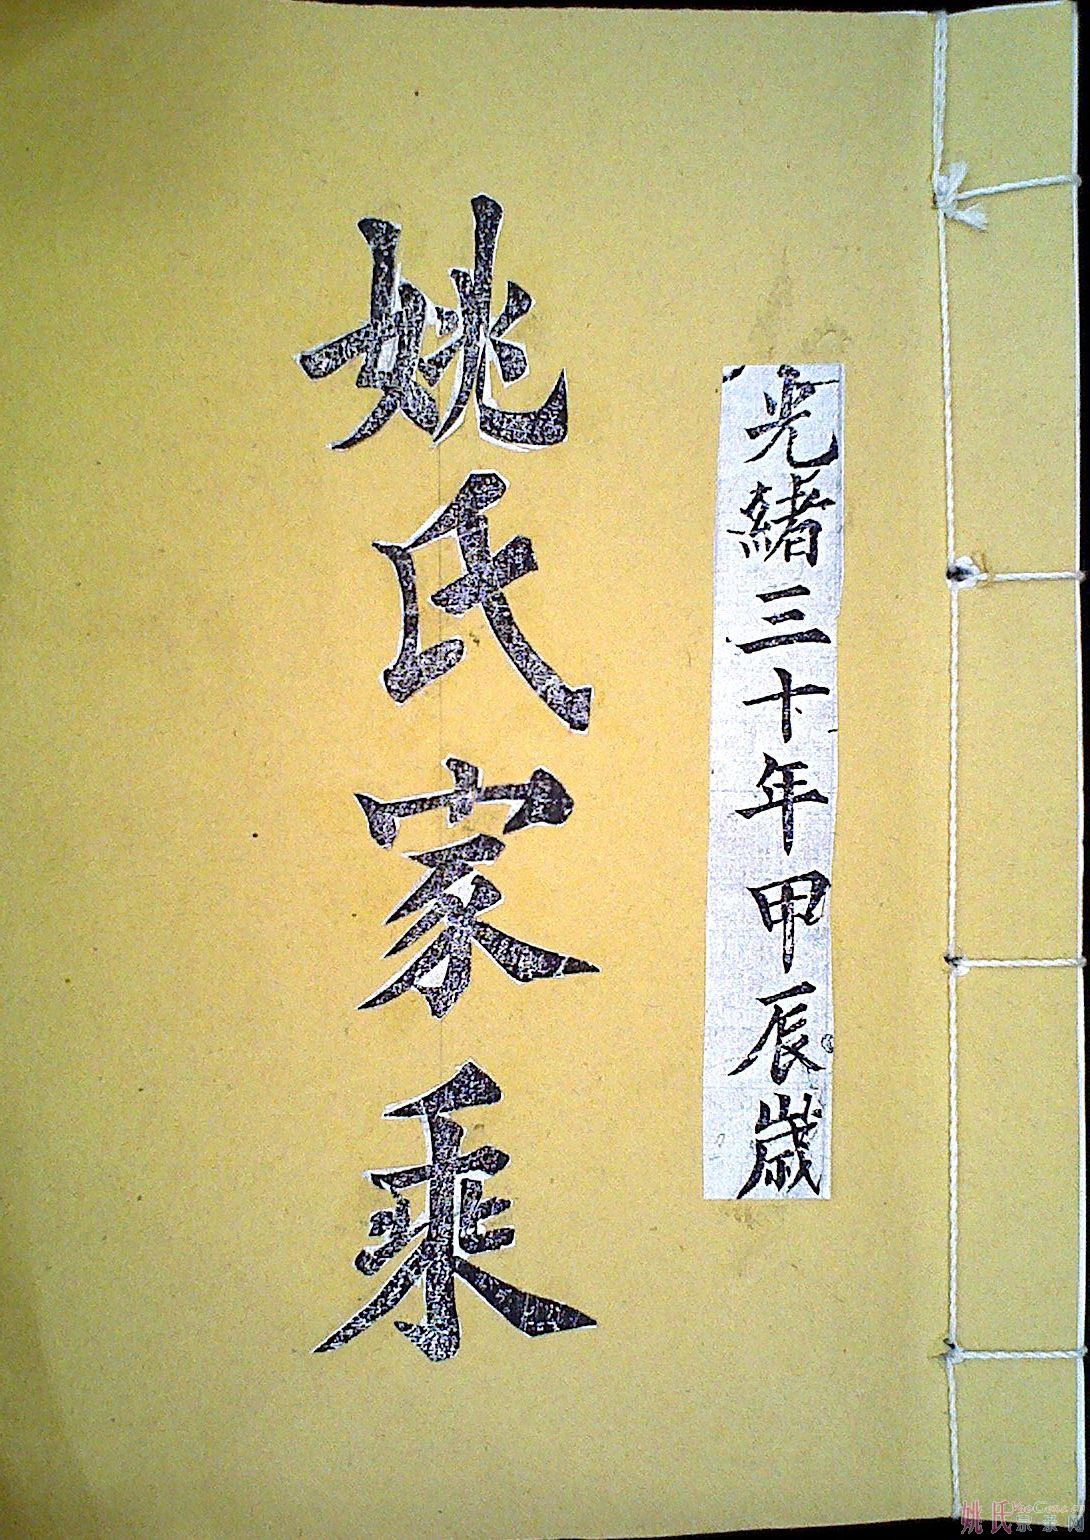 光緒三十年甲辰歲
姚氏家乘
姚氏